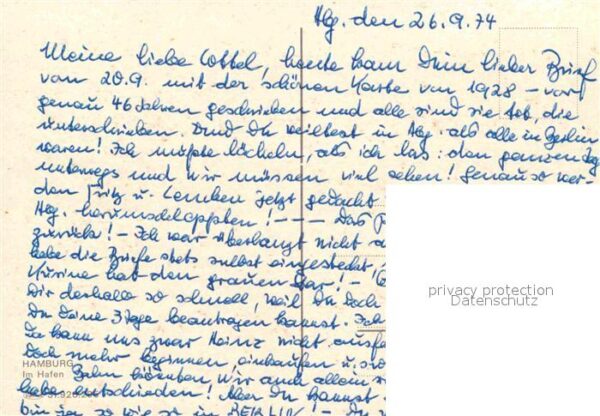 Hbg. den 26.9.74
Meine liebe Cobbel, heute kam Dein lieber Brief
vom 20.9. mit der schönen Karte von 1928 – vor
genau 46 Jahren geschrieben und alle sind sie tot, die
unterschrieben. Und Du weiltest in Hbg. als alle in Berlin
waren! Ich mußte lächeln, als ich las: den ganzen Tag
unterwegs und wir müssen viel sehen! Genau so wer-
den Fritz u. jetzt gedacht
Hbg. herumschleppten! – – – Das
zurück! – Ich war überhaupt nicht
habe die Briefe stets selbst eingesteckt,
hat den grauen Star! –
Dir deshalb so schnell, weil Du doch
Du Deine beantragen kannst. Ich
Da kann uns zwar Heinz nicht
doch mehr beginnen, einkaufen u. s.
HAMBURG
Im Hafen
Bahn könnten wir auch allein
habe entschieden! Aber Du kannst
bin so wie so in BERLIN –
privacy protection
Datenschutz